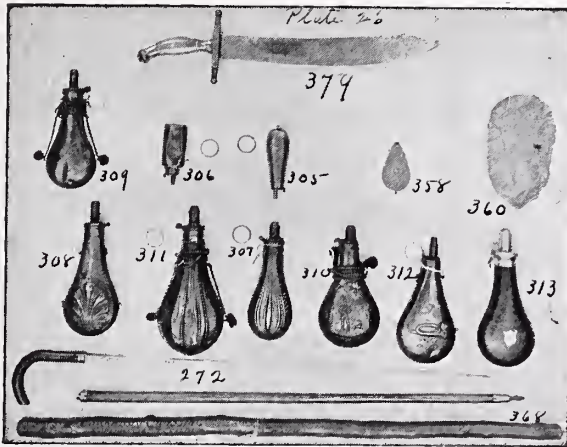 Plate 26
379
309
306
305
358
360
308
311
307
310
312
313
272
368